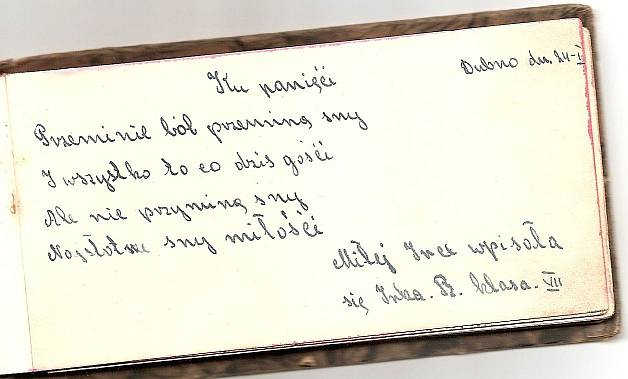 Ku panięći
Dubno dn. 24-I
Przeminie ból przeminą sny
I wszystko to co dziś gości
Ale nie przyminą sny
sny miłośći
Miłej Ince wpisała
się Inka. B. klasa. VII